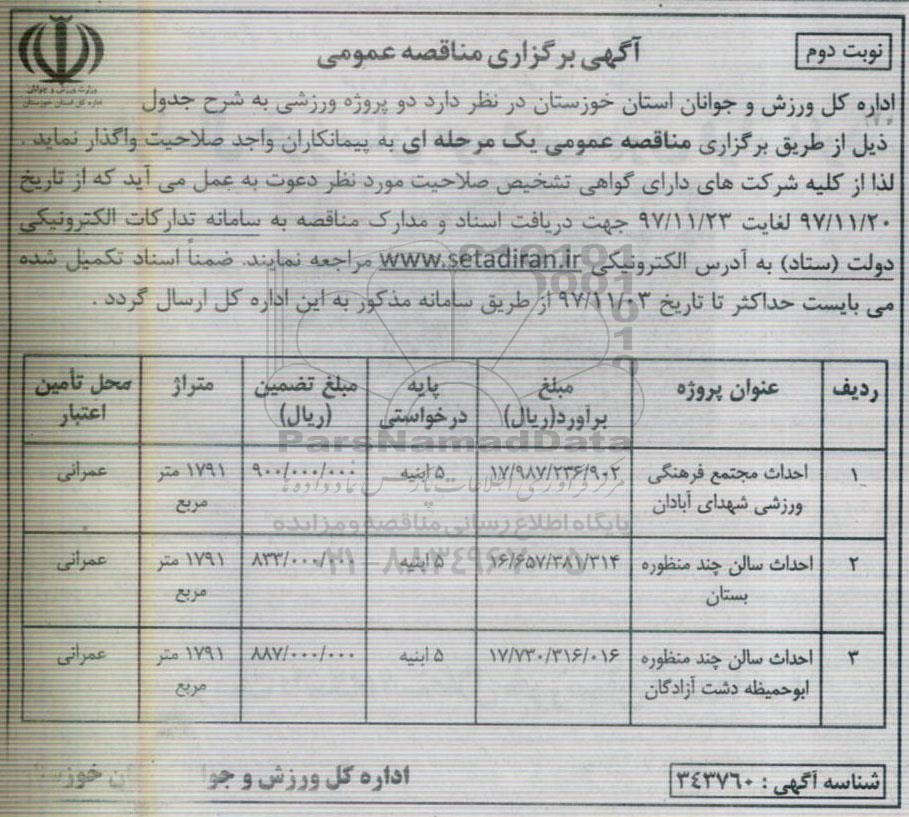 نوبت دوم
آگهی برگزاری مناقصه عمومی
وزارت ورزش و جوانان
اداره کل استان خوزستان
اداره کل ورزش و جوانان استان خوزستان در نظر دارد دو پروژه ورزشی به شرح جدول
ذیل از طریق برگزاری مناقصه عمومی یک مرحله ای به پیمانکاران واجد صلاحیت واگذار نماید .
لذا از کلیه شرکت های دارای گواهی تشخیص صلاحیت مورد نظر دعوت به عمل می آید که از تاریخ
۹۷/۱۱/۲۰ لغایت ۹۷/۱۱/۲۳ جهت دریافت اسناد و مدارک مناقصه به سامانه تدارکات الکترونیکی
دولت (ستاد) به آدرس الکترونیکی www.setadiran.ir مراجعه نمایند. ضمناً اسناد تکمیل شده
می بایست حداکثر تا تاریخ ۹۷/۱۱/۰۳ از طریق سامانه مذکور به این اداره کل ارسال گردد .
ردیف عنوان پروژه مبلغ برآورد(ریال) پایه درخواستی مبلغ تضمین (ریال) متراژ محل تأمین اعتبار
۱ احداث مجتمع فرهنگی ورزشی شهدای آبادان ۱۷/۹۸۷/۲۳۶/۹۰۲ ۵ ابنیه ۹۰۰/۰۰۰/۰۰۰ ۱۷۹۱ متر مربع عمرانی
۲ احداث سالن چند منظوره بستان ۱۶/۶۵۷/۳۸۱/۳۱۴ ۵ ابنیه ۸۳۳/۰۰۰/۰۰۰ ۱۷۹۱ متر مربع عمرانی
۳ احداث سالن چند منظوره ابوحمیظه دشت آزادگان ۱۷/۷۳۰/۳۱۶/۰۱۶ ۵ ابنیه ۸۸۷/۰۰۰/۰۰۰ ۱۷۹۱ متر مربع عمرانی
ParsNamadData
مرکز فرآوری اطلاعات پارس نماد داده ها
پایگاه اطلاع رسانی مناقصه و مزایده
شناسه آگهی : ۳۴۳۷۶۰
اداره کل ورزش و